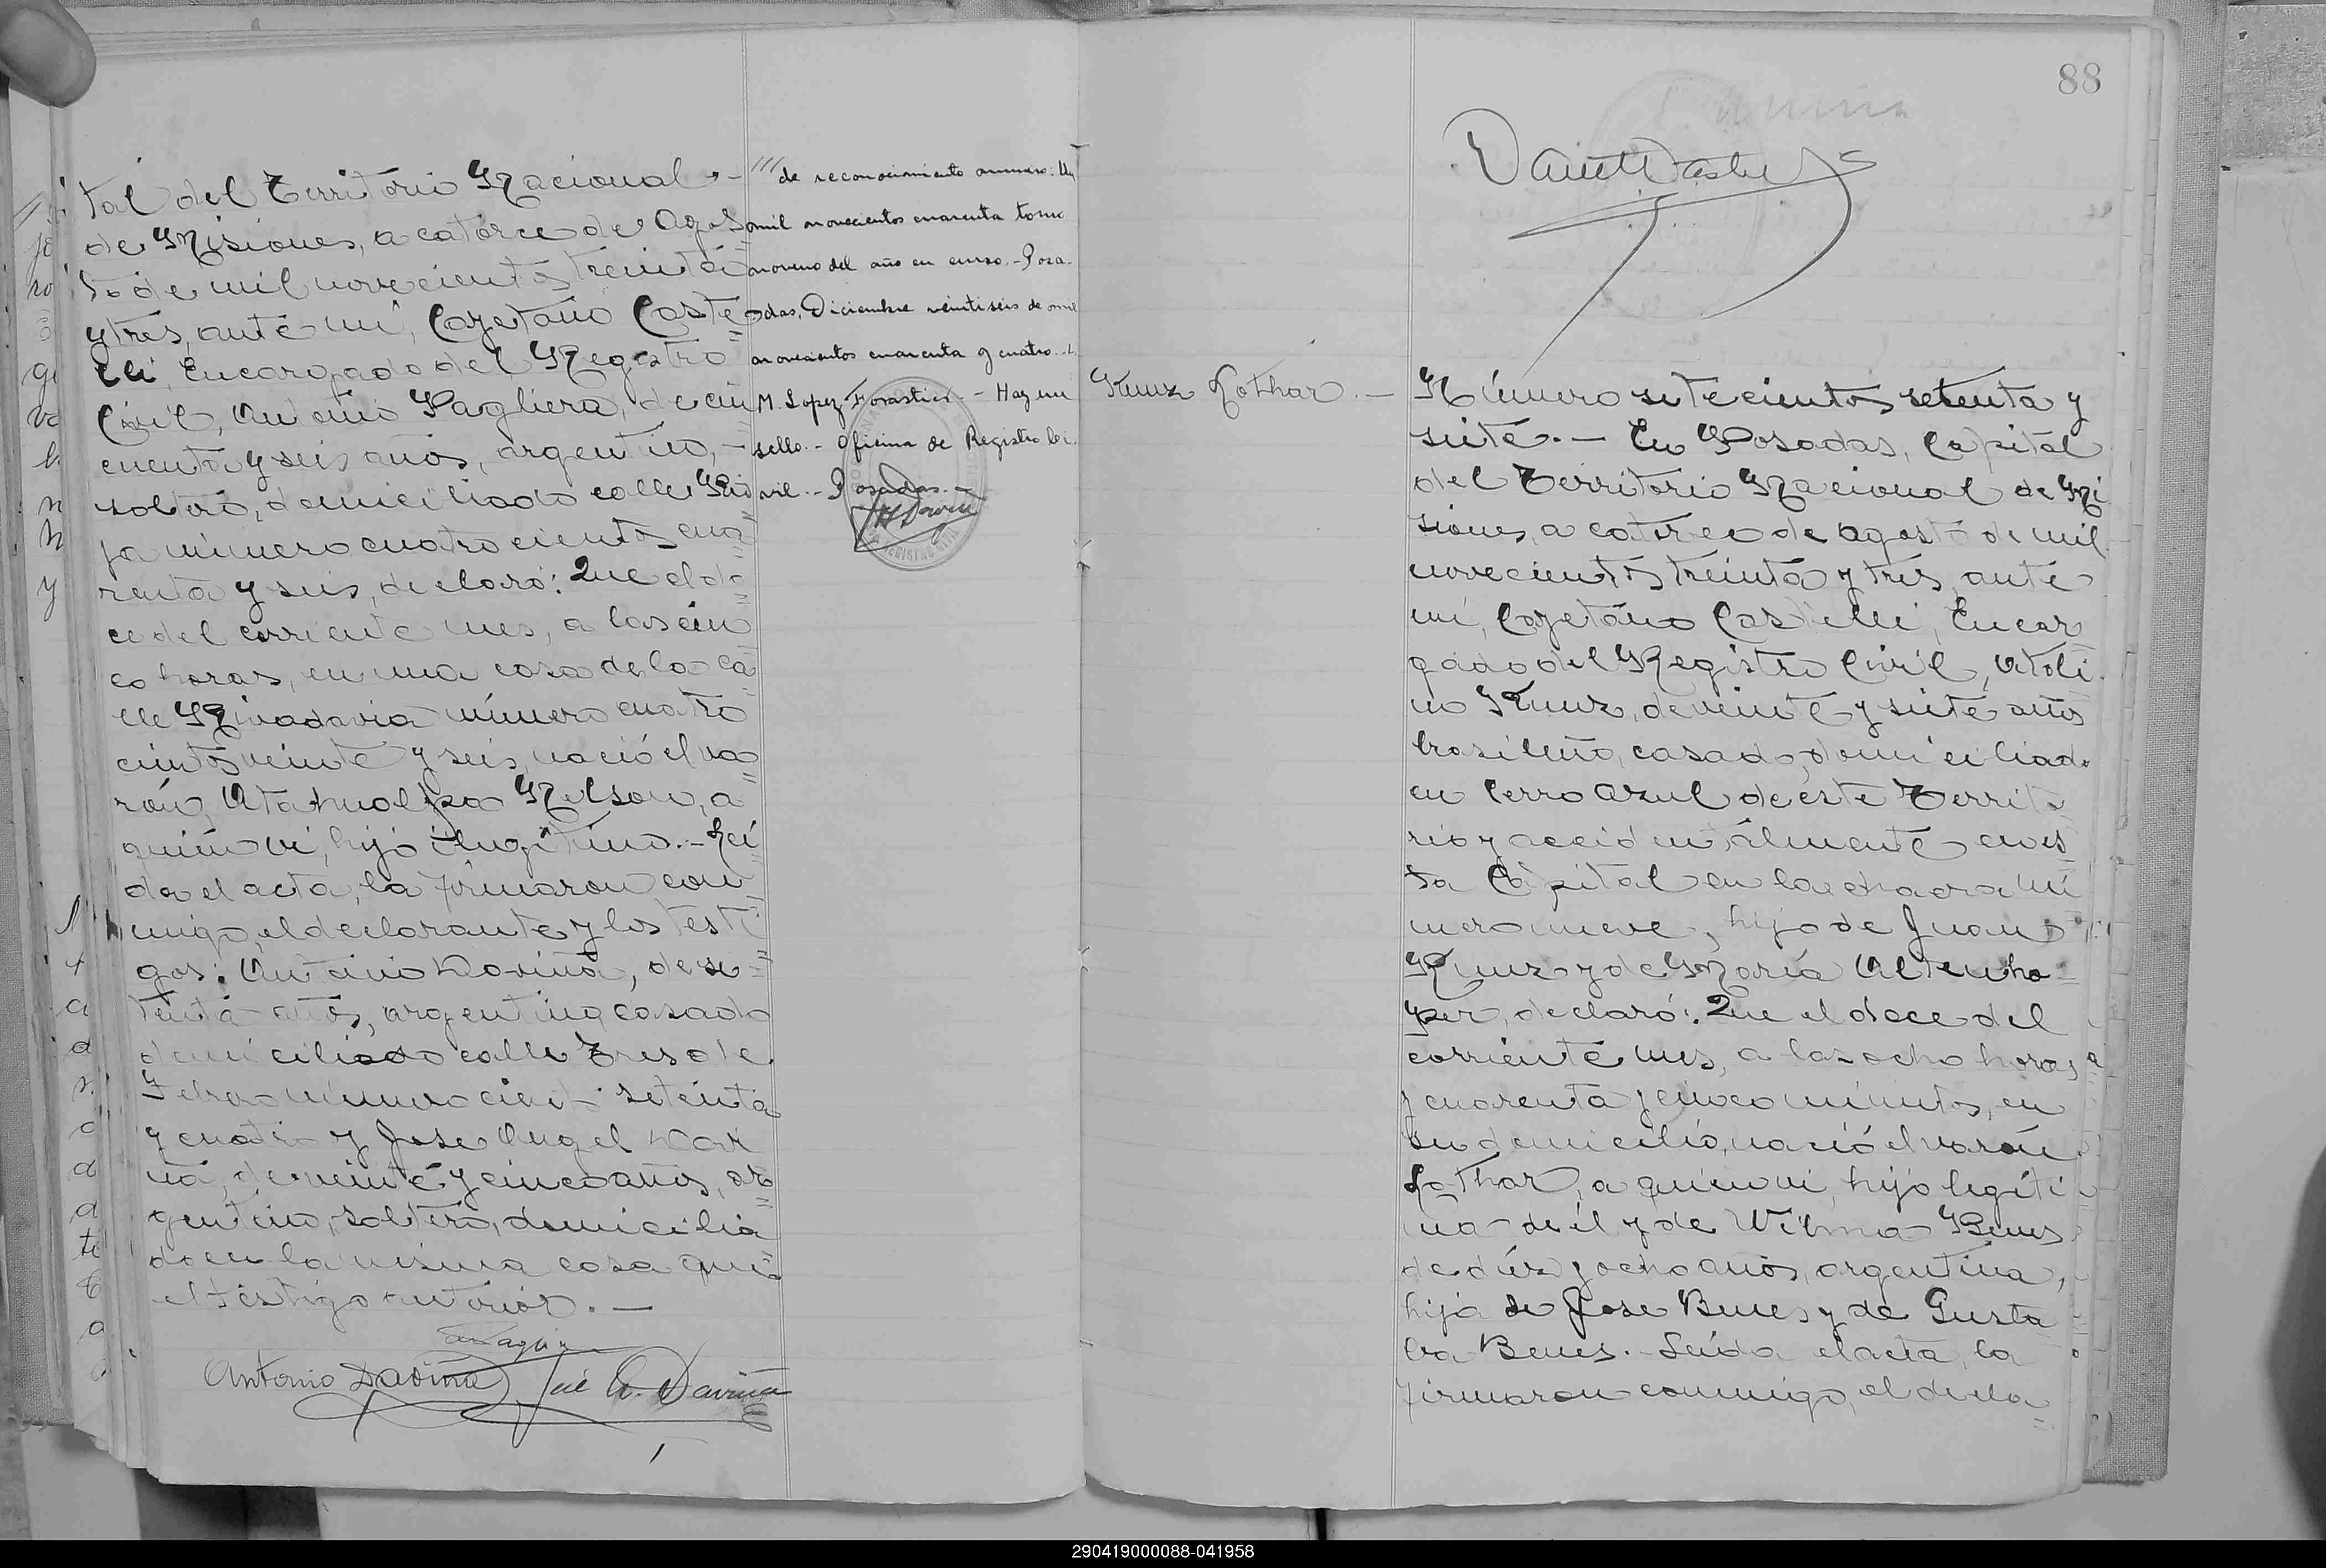 tal del Territorio Nacional -
de Misiones, a catorce de Agos
to de mil novecientos treinta
y tres, ante mí, Cayetano Caste
lli, Encargado del Registro
Civil, Antonio Pagliera, de cin
cuenta y seis años, argentino, -
soltero, domiciliado calle Rio
ja número cuatrocientos cua
renta y seis, declaró: Que el do
ce del corriente mes, a las cin
co horas, en una casa de la ca
lle Rivadavia número cuatro
cientos veinte y seis, nació el va
rón, Atahualpa Nelson, a
quien vi, hijo ilegítimo.- Leí
da el acta, la firmaron con
migo, el declarante y los testi
gos: Antonio Daviña, de se
tenta años, argentino, casado
domiciliado calle Tres de
Febrero número ciento setenta
y cuatro y Jose Angel Davi
ña, de veinte y cinco años, ar
gentino, soltero, domicilia
do en la misma casa que
el testigo anterior. -
Antonio Daviña José A. Daviña
/// de reconocimiento número: Un
mil novecientos cuarenta tomo
noveno del año en curso.- Posa-
das, Diciembre veintiseis de mil
novecientos cuarenta y cuatro.-
M. Lopez Forastier.- Hay un
sello.- Oficina de Registro Ci-
vil.- Posadas.-
88
Kunz Lothar. -
Número setecientos setenta y
siete. - En Posadas, Capital
del Territorio Nacional de Mi
siones, a catorce de agosto de mil
novecientos treinta y tres, ante
mí, Cayetano Castelli, Encar
gado del Registro Civil, Atoli
no Kunz, de veinte y siete años
brasileño, casado, domiciliado
en Cerro Azul de este Territo
rio y accidentalmente en es
ta Capital en la chacra nú
mero nueve, hijo de Juan
Kunz y de María Altenho
fer, declaró: Que el doce del
corriente mes, a las ocho horas
y cuarenta y cinco minutos, en
su domicilio, nació el varón
Lothar, a quien vi, hijo legíti
mo de él y de Wilma Benes
de diez y ocho años, argentina,
hija de Jose Benes y de Gusta
va Benes. - Leída el acta, la
firmaron conmigo, el decla
290419000088-041958